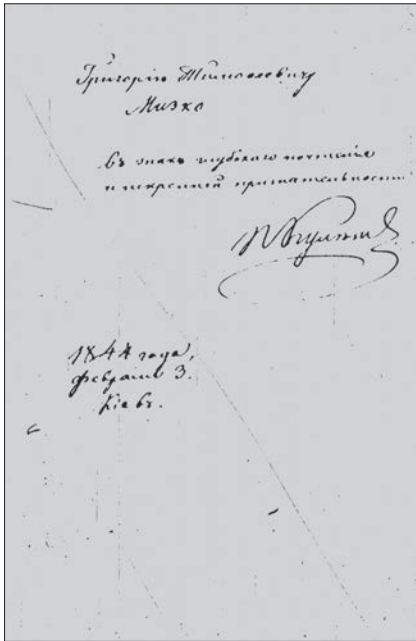 Григорію Тимофеевичу
Мизко
въ знакъ глубокаго почтенія
и искренней признательности
П Кулѣшъ
1844 года,
февраля 3.
Кіевъ.